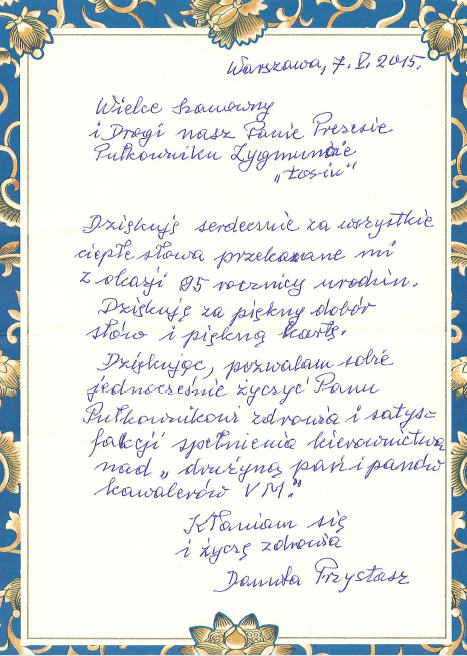 Warszawa, 7.V.2015.
Wielce Szanowny
i Drogi nasz Panie Prezesie
Pułkowniku Zygmuncie
„Łosiu"
Dziękuję serdecznie za wszystkie
ciepłe słowa przekazane mi
z okazji 95 rocznicy urodzin.
Dziękuję za piękny dobór
słów i piękną kartę.
Dziękując, pozwalam sobie
jednocześnie życzyć Panu
Pułkownikowi zdrowia i satys=
fakcji spełnienia kierownictwa
nad „drużyną pań i panów
kawalerów VM."
Kłaniam się
i życzę zdrowia
Danuta Przystasz